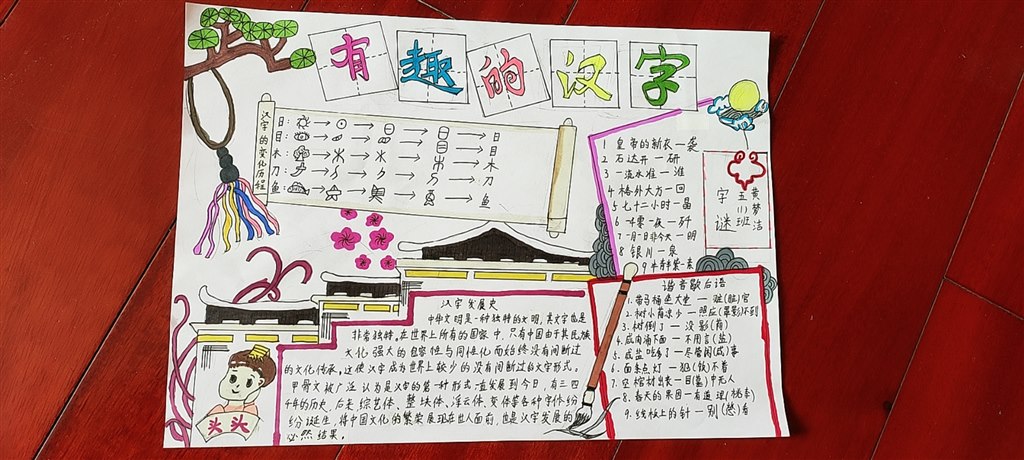 有趣的汉字
汉字的变化历程
日：日
目：目
木：木
刀：刀
鱼：鱼
1 皇帝的新衣一袭
2 石达开一研
3 一流水准一淮
4 格外大方一回
5 七十二小时一晶
6 一千零一夜一歼
7 一月一日非今天一明
8 银川一泉
字谜
五(1)班
黄梦洁
汉字发展史
中华文明是一种独特的文明，其文字也是
非常独特。在世界上所有的国家中，只有中国由于其民族
文化强大的包容性与同性化而始终没有间断过
的文化传承，这使汉字成为世界上较少的没有间断过的文字形式。
甲骨文被广泛认为是汉字的第一种形式一直发展到今日，有三四
千年的历史，后来综艺体、整块体、浮云体、变体等各种字体纷
纷诞生，将中国文化的繁荣展现在世人面前，也是汉字发展的
必然结果。
谐音歇后语
1. 带马桶坐大堂 — 赃(脏)官
2. 树小荫凉少 — 照应(罩影)不到
3. 树倒了 — 没影(荫)
4. 咸肉汤面 — 不用言(盐)
5. 咸盐吃多了 — 尽管闲(咸)事
6. 面条点灯 — 犯(饭)不着
7. 空棺材出丧 — 目(墓)中无人
8. 春天的果园 — 有道理(桃李)
9. 线板上的针 — 别(憋)着
头头